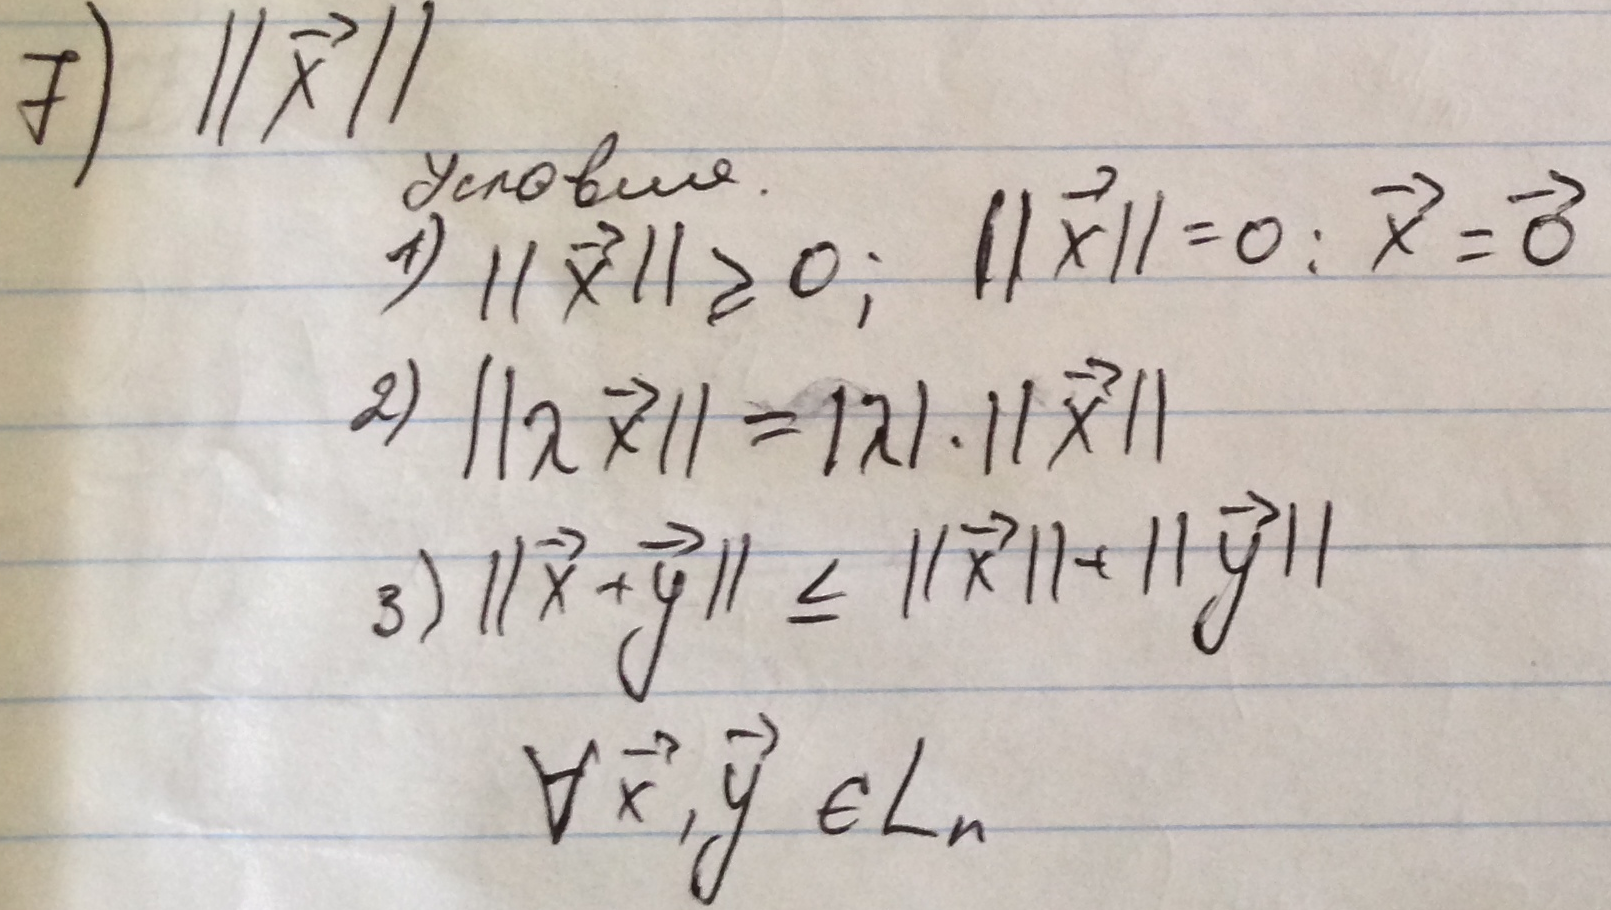 7) ||x⃗||
Условие.
1) ||x⃗|| ≥ 0; ||x⃗|| = 0 : x⃗ = 0⃗
2) ||λx⃗|| = |λ|·||x⃗||
3) ||x⃗ + y⃗|| ≤ ||x⃗|| + ||y⃗||
∀ x⃗, y⃗ ∈ Lₙ